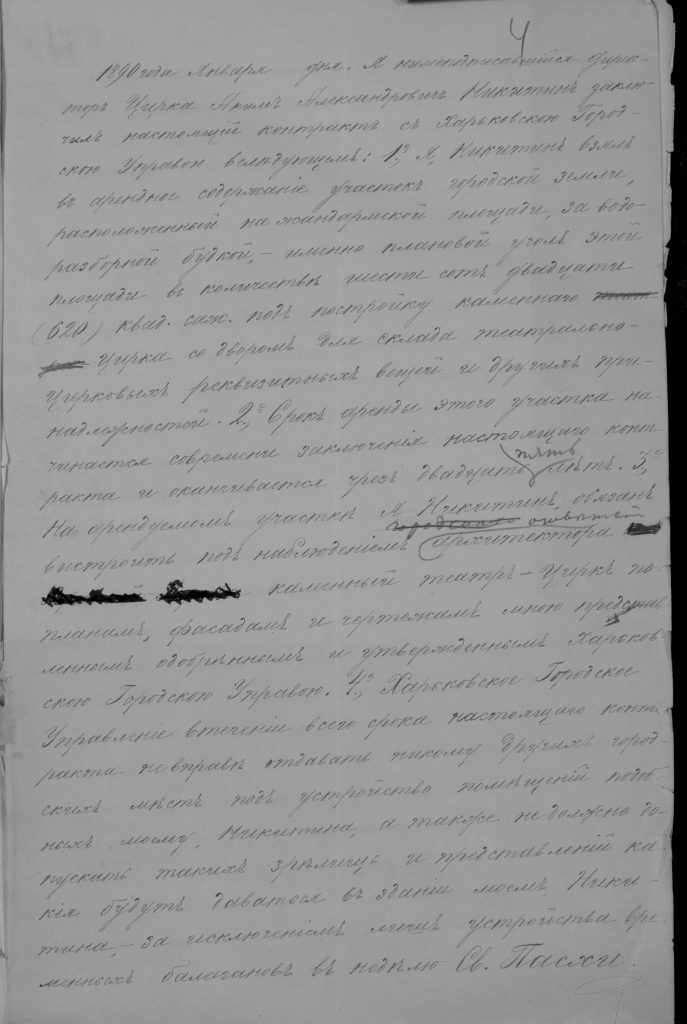 4
1890 года Января дня. Я нижеподписавшійся Дирек-
торъ Цирка Акимъ Александровичъ Никитинъ заклю-
чилъ настоящій контрактъ съ Харьковскою Город-
скою Управою вслѣдующемъ: 1е, Я, Никитинъ взялъ
въ арендное содержаніе участокъ городской земли,
расположенный на жандармской площади, за водо-
разборной будкой, – именно плановой уголъ этой
площади въ количествѣ шести сотъ двадцати
(620) квад. саж. подъ постройку каменнаго
цирка со дворомъ для склада театрально-
цирковыхъ реквизитныхъ вещей и другихъ при-
надлежностей. 2е, Срокъ аренды этого участка на-
чинается современи заключенія настоящаго конт-
ракта и оканчивается чрезъ двадцать пять лѣтъ. 3е,
На арендуемомъ участкѣ Я Никитинъ, обязанъ
выстроить подъ наблюденіемъ городскаго архитектора
каменный театръ – Циркъ по
планамъ, фасадамъ и чертежамъ мною представ
леннымъ одобреннымъ и утвержденнымъ Харьков
скою Городскою Управою. 4е, Харьковское Городское
Управленіе втеченіи всего срока настоящаго конт
ракта не вправѣ отдавать никому другихъ город
скихъ мѣстъ подъ устройство помѣщеній подоб
ныхъ моему, Никитина, а также не должно до-
пускать такихъ зрѣлищъ и представленій ка-
кія будутъ даваться въ зданіи моемъ, Ники-
тина, – за исключеніемъ лишь устройства вре-
менныхъ балагановъ въ недѣлю Св. Пасхи.